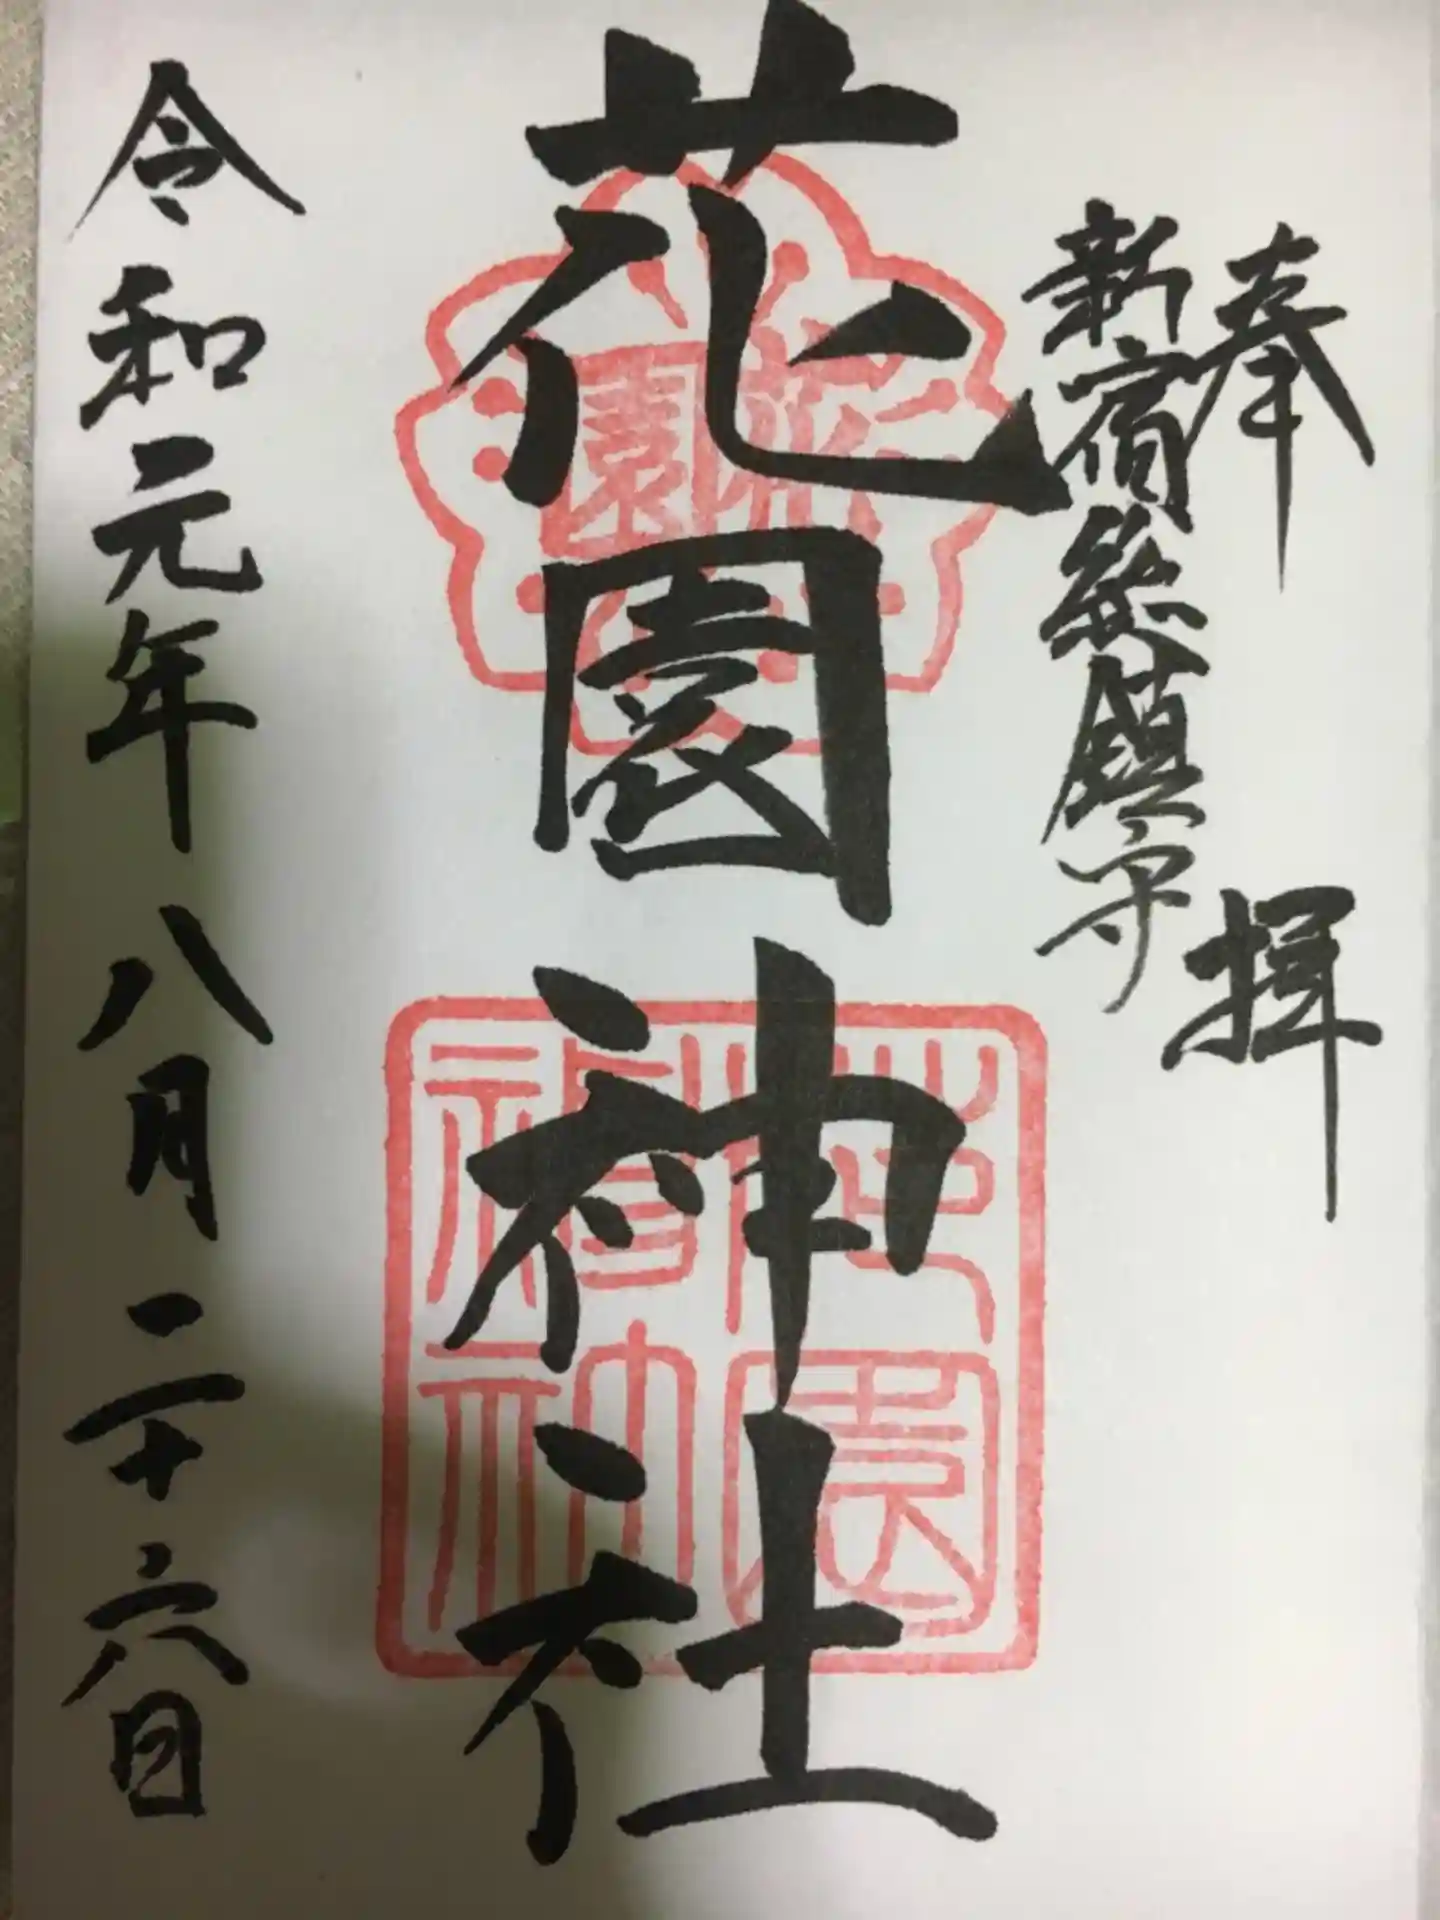 奉拝
新宿総鎮守
花園神社
令和元年八月二十六日
花園
花園神社